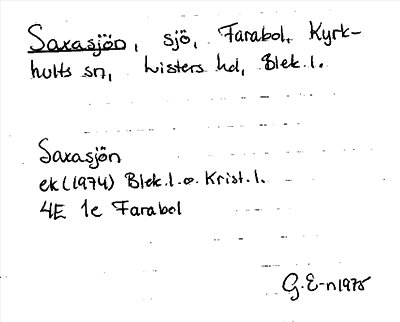 Saxasjön, sjö, Farabol, Kyrk-
hults sn, Listers hd, Blek.l.
Saxasjön
ek (1974) Blek.l. o. Krist.l.
4E 1e Farabol
G.E-n 1975